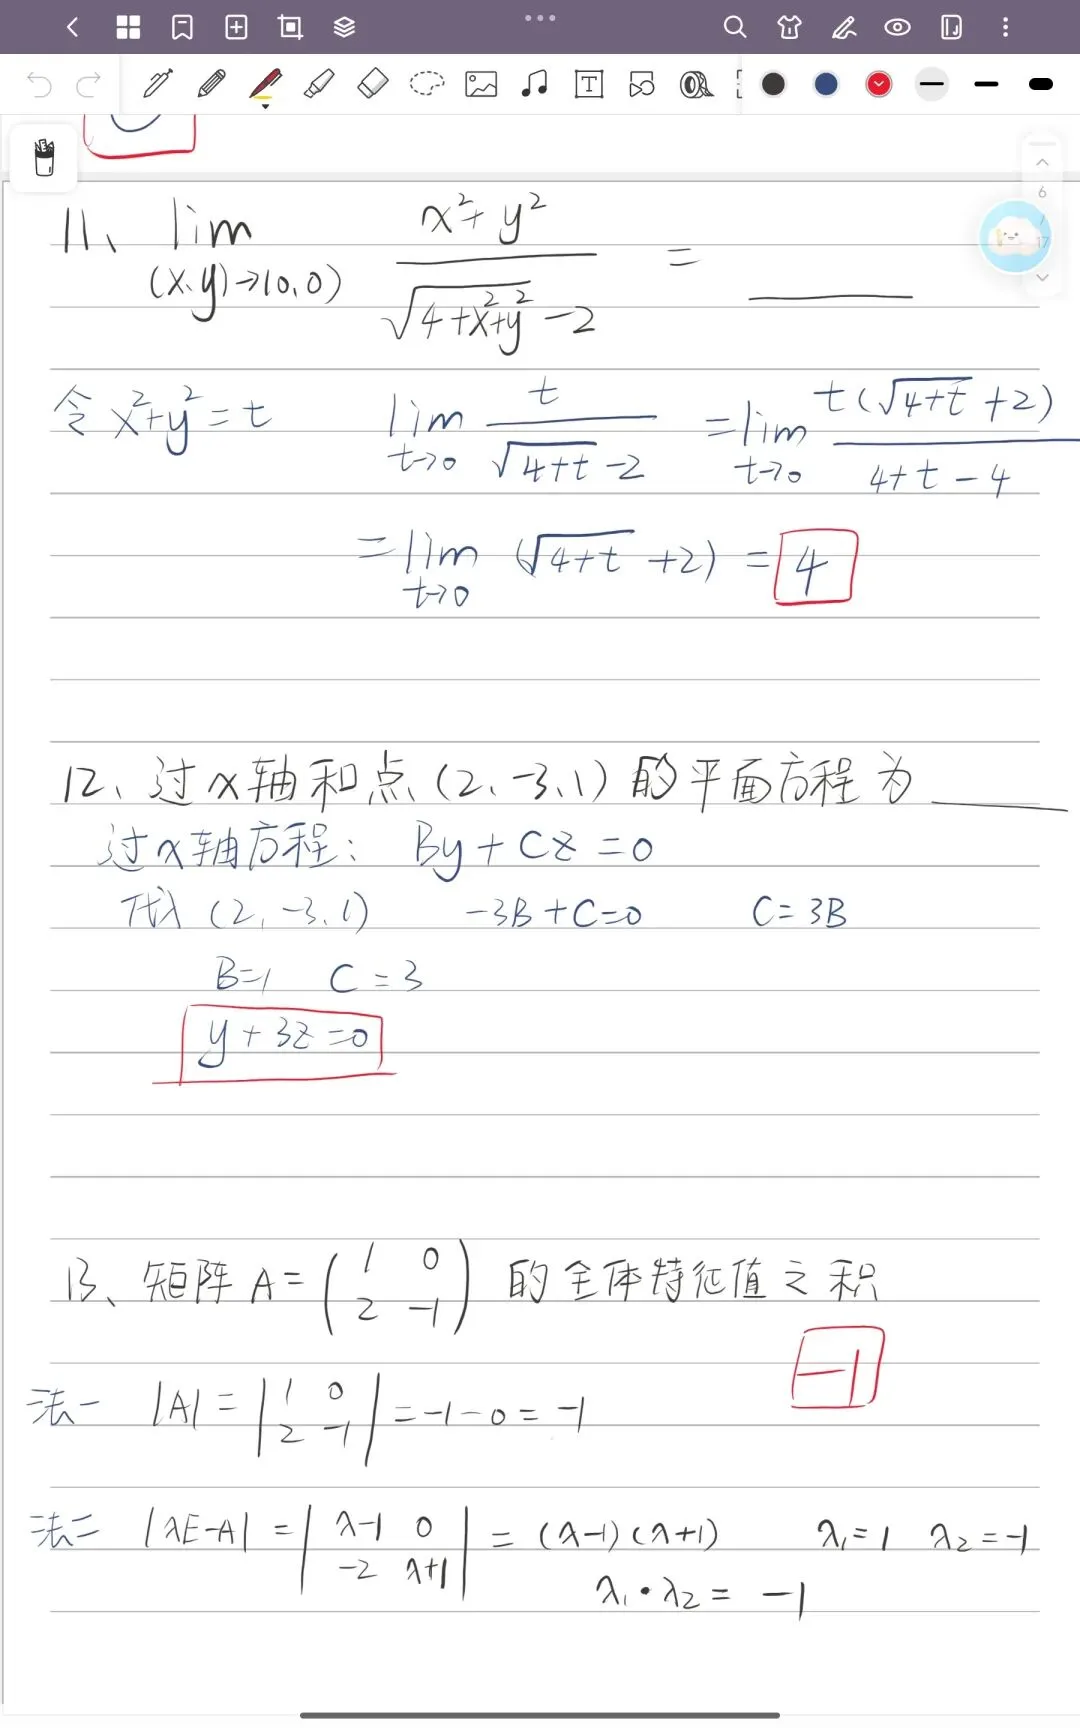 11、 lim (x,y)→(0,0) (x²+y²)/(√(4+x²+y²) -2) = ____
令 x²+y²=t lim t→0 t/(√(4+t) -2) = lim t→0 t(√(4+t) +2)/(4+t-4)
= lim t→0 (√(4+t) +2) = 4
12、过x轴和点(2,-3,1)的平面方程为____
过x轴方程: By+Cz=0
代入(2,-3,1) -3B+C=0 C=3B
B=1 C=3
y+3z=0
13、矩阵A=(1 0
2 -1)的全体特征值之积
-1
法一 |A|=|1 0
2 -1|=-1-0=-1
法二 |λE-A|=|λ-1 0
-2 λ+1|=(λ-1)(λ+1) λ₁=1 λ₂=-1
λ₁·λ₂=-1